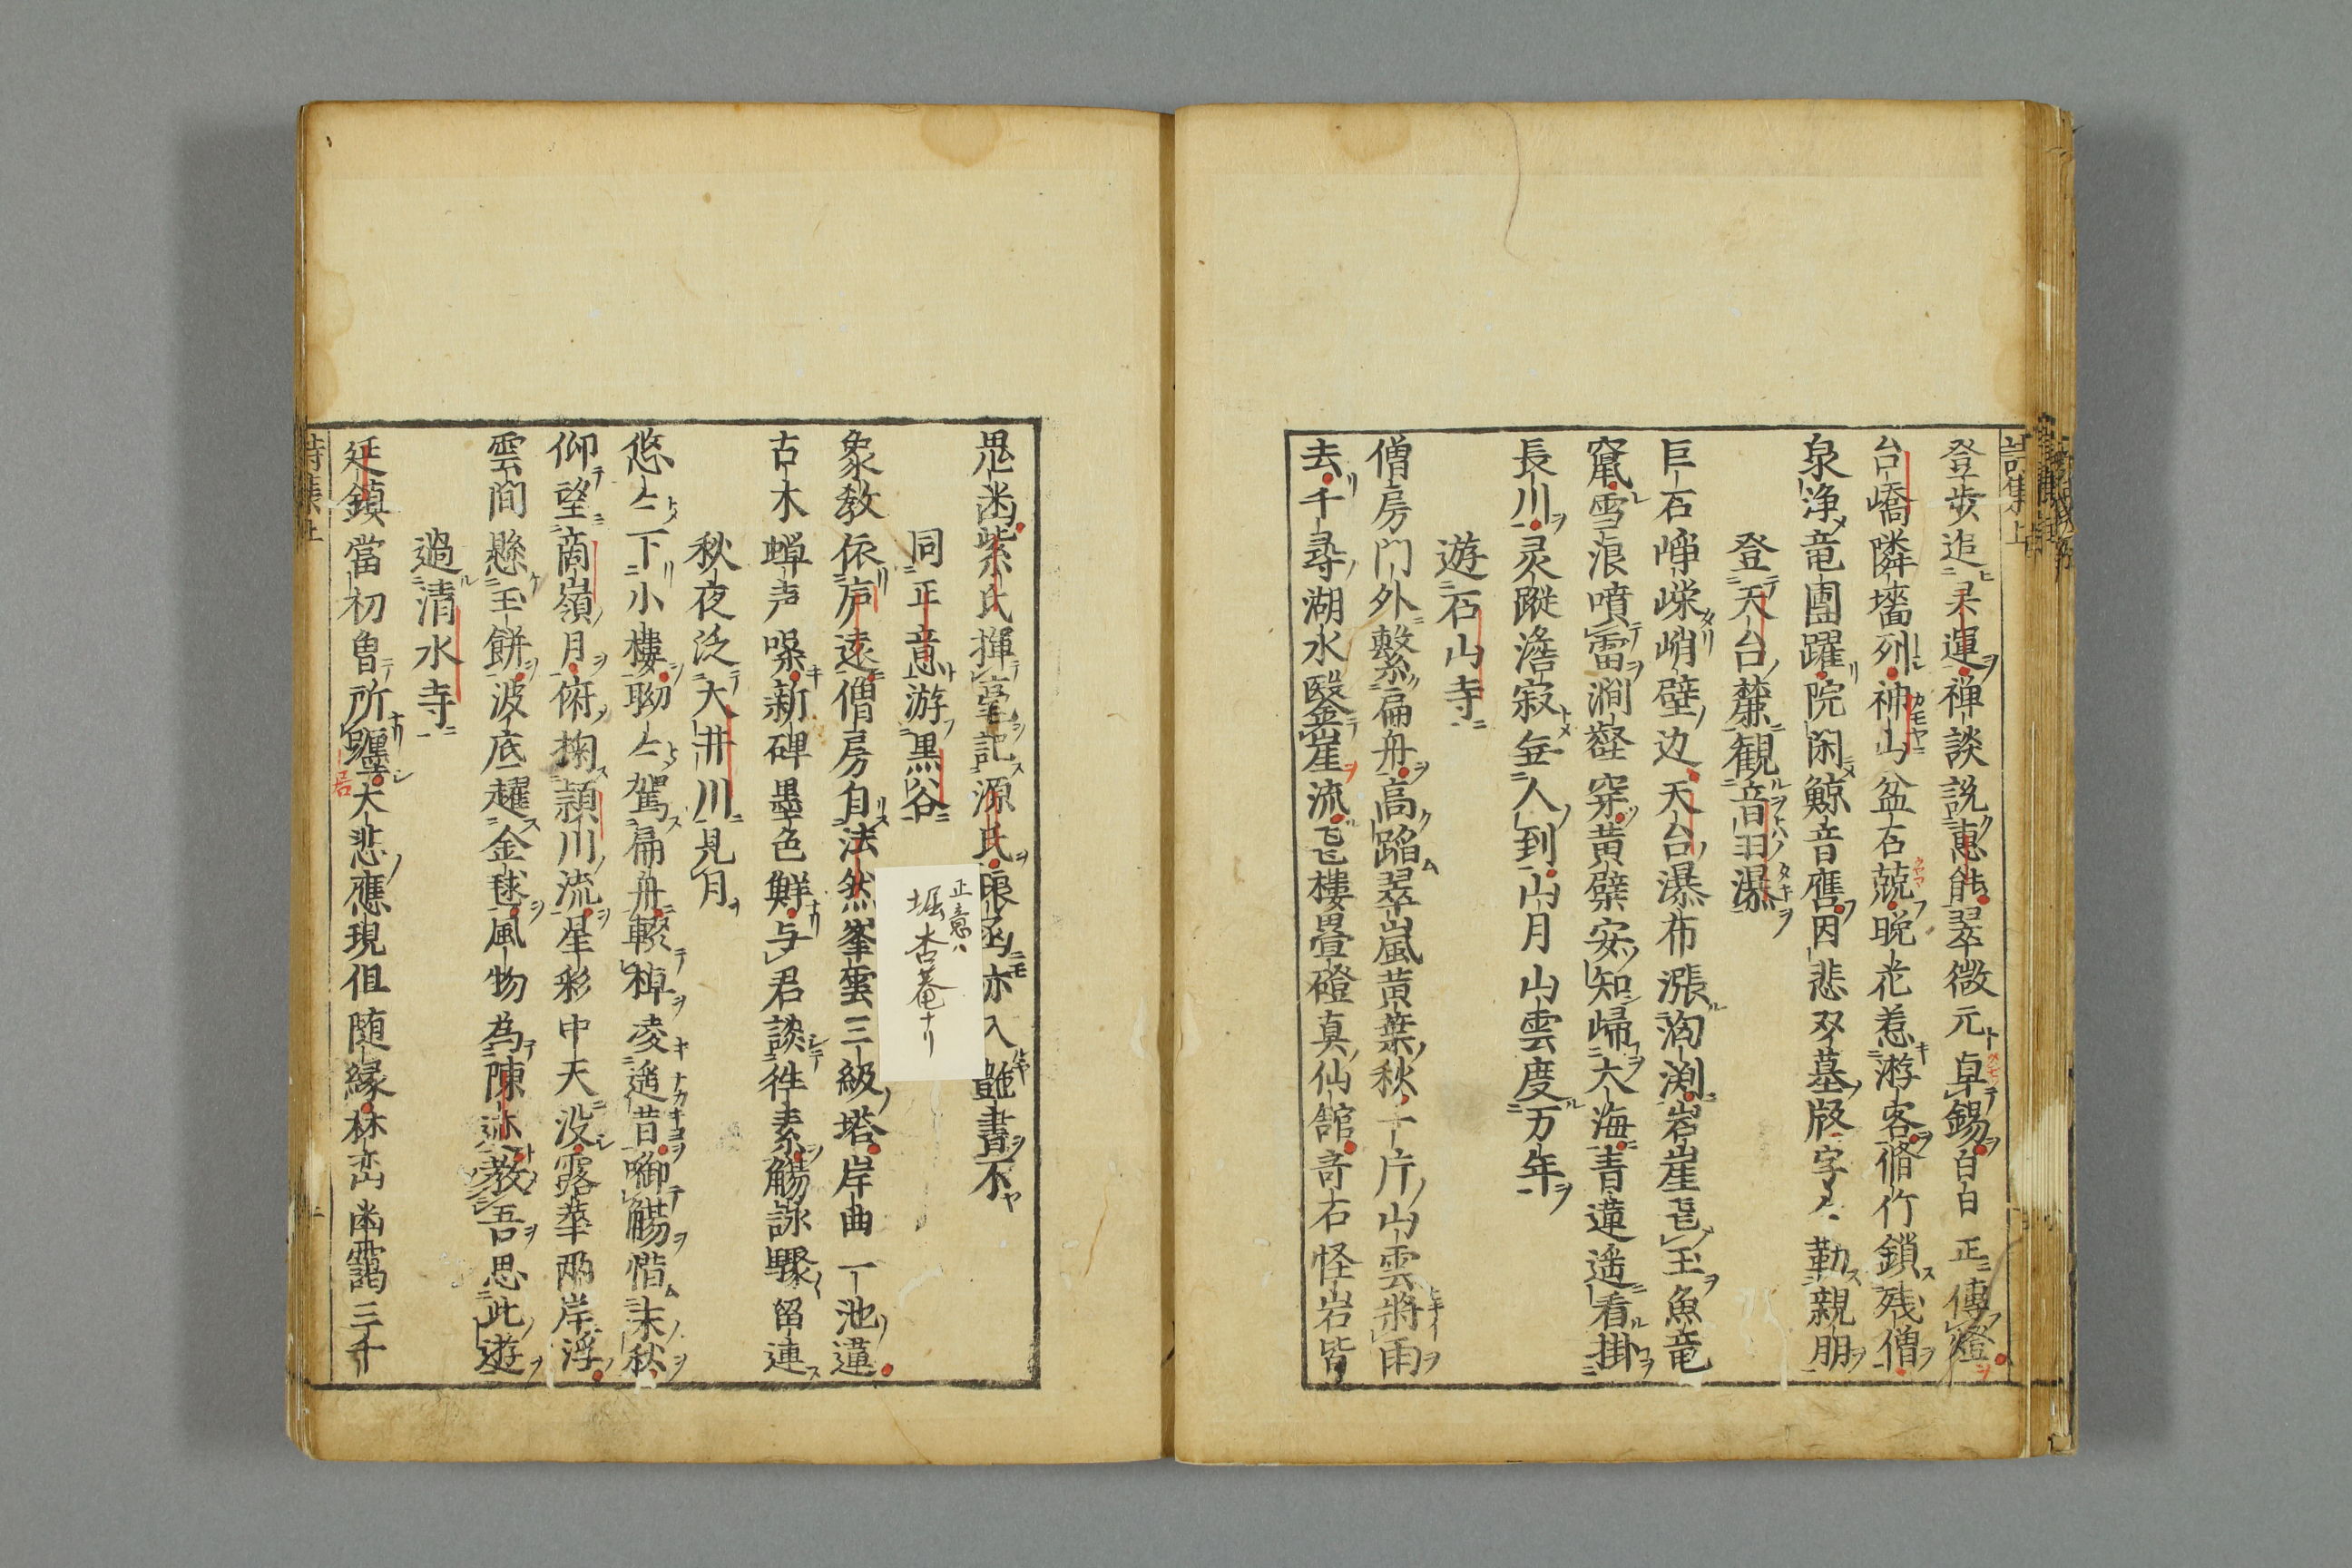 登歩追灵運禅談説惠能翠微元卓錫百白正傳燈
台嶠隣墻列神山盆石競晩花惹游客脩竹鎖残僧
泉浄竜團躍院闲鯨音膺因悲双墓版字々勒親朋
登天台麓観音羽瀑
巨石崢嶸峭壁边天台瀑布漲洶渕岩崖㐂玉魚竜
窟雪浪噴雷澗壑穿黄檗安知帰大海青蓮遥看掛
長川灵蹤澹寂無人到山月山雲度万年
遊石山寺
僧房门外繋扁舟高踏翠嵐黄葉秋一片山雲将雨
去千尋湖水毉崖流飛樓畳磴真仙舘奇石怪岩皆
思洣紫氏揮毫記源氏痕函亦入艶書不
同正意游黒谷
象教依庐遠僧房自法然峯雲三級塔岸曲一池蓮
古木蝉声噪新碑墨色鮮与君談徃素觴詠驟留連
秋夜泛大井川見月
悠々下小樓聊々駕扁舟輟棹凌遥昔啣觴惜末秋
仰望商嶺月俯掬潁川流星彩中天没露華兩岸浮
雲間懸玉餅波底趯金毬風物為陳迹教吾思此遊
過清水寺
延鎮當初曽所躔大悲應現但随縁林峦幽靄三千
居
正意ハ
堀杏菴ナリ
詩集上